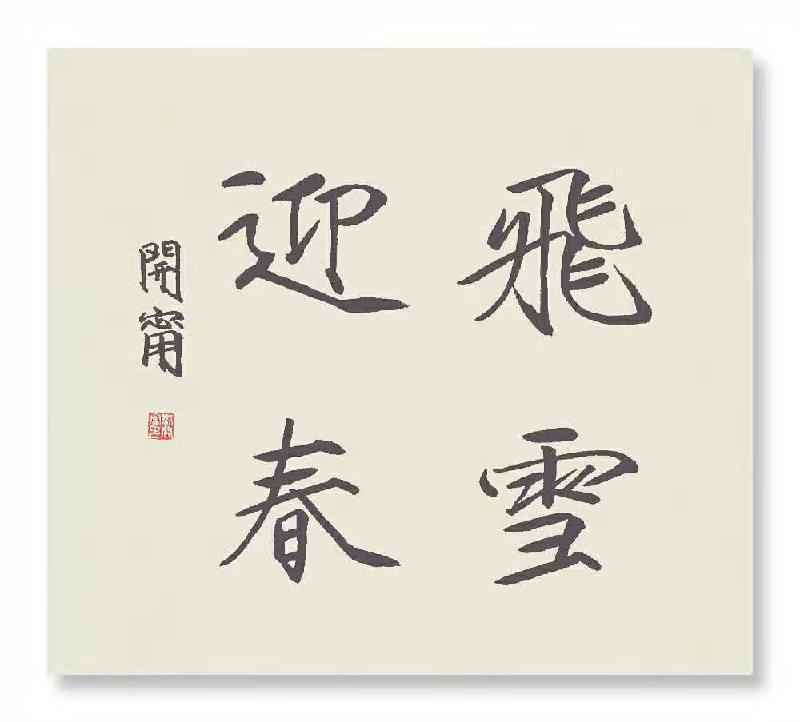 飛雪
迎春
開甯